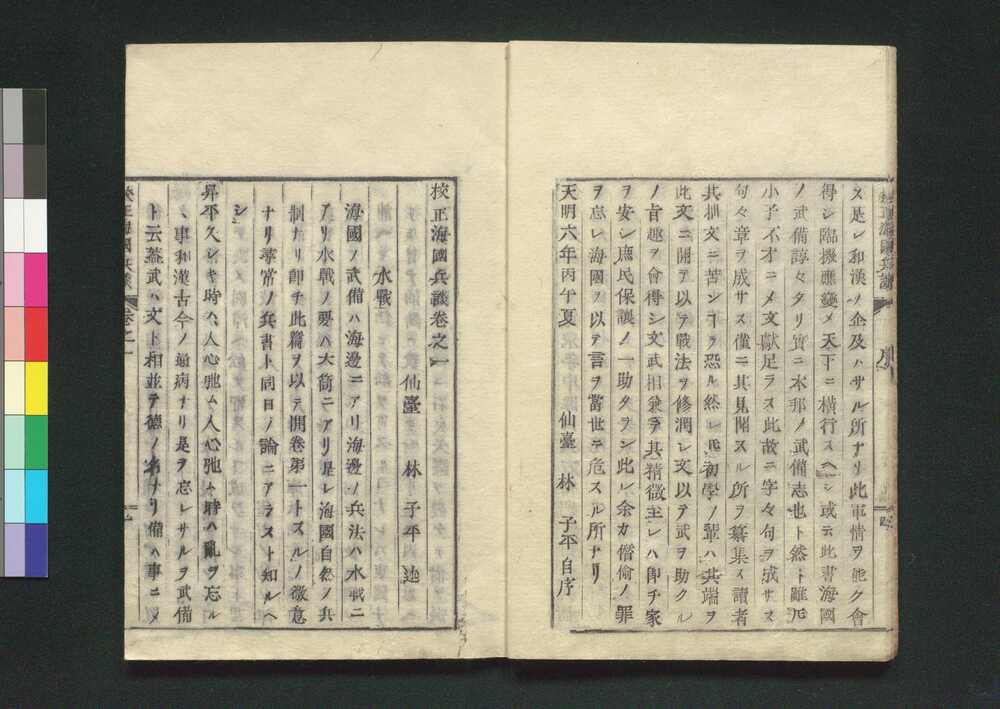 ス是レ和漢ノ企及ハサル所ナリ此軍情ヲ能ク會
得シ臨機應變メ天下ニ横行スヘシ或云此書海國
ノ武備諄々タリ實ニ本邦ノ武備志也ト然ト雖𪜈
小子不才ニメ文獻足ラス此故ニ字々句ヲ成サス
句々章ヲ成サス僅ニ其見聞スル所ヲ纂集メ讀者
其拙文ニ苦シヿヲ恐ル然レ𪜈初學ノ輩ハ其端ヲ
此文ニ開テ以テ戰法ヲ修潤シ文以テ武ヲ助クル
ノ旨趣ヲ會得シ文武相兼テ其精微主レハ即チ家
ヲ安シ庶民保護ノ一助タラン此レ余カ僭偷ノ罪
ヲ忘レ海國ヲ以テ言ヲ當世ニ危スル所ナリ
天明六年丙午夏 仙臺 林 子平自序
校正海國兵談卷之一
仙臺 林 子平 述
水戰
海國ノ武備ハ海邊ニアリ海邊ノ兵法ハ水戰ニ
アリ水戰ノ要ハ大筒ニアリ是レ海國自然ノ兵
制ナリ即チ此篇ヲ以テ開卷第一トスルノ微意
ナリ尋常ノ兵書ト同日ノ論ニアラスト知ルヘ
シ
昇平久シキ時ハ人心弛ム人心弛ム時ハ亂ヲ忘ル
ヽ事和漢古今ノ通病ナリ是ヲ忘レサルヲ武備
ト云蓋武ハ文ト相並テ德ノ名ナリ備ハ事ニメ
校正海國兵談 卷之一